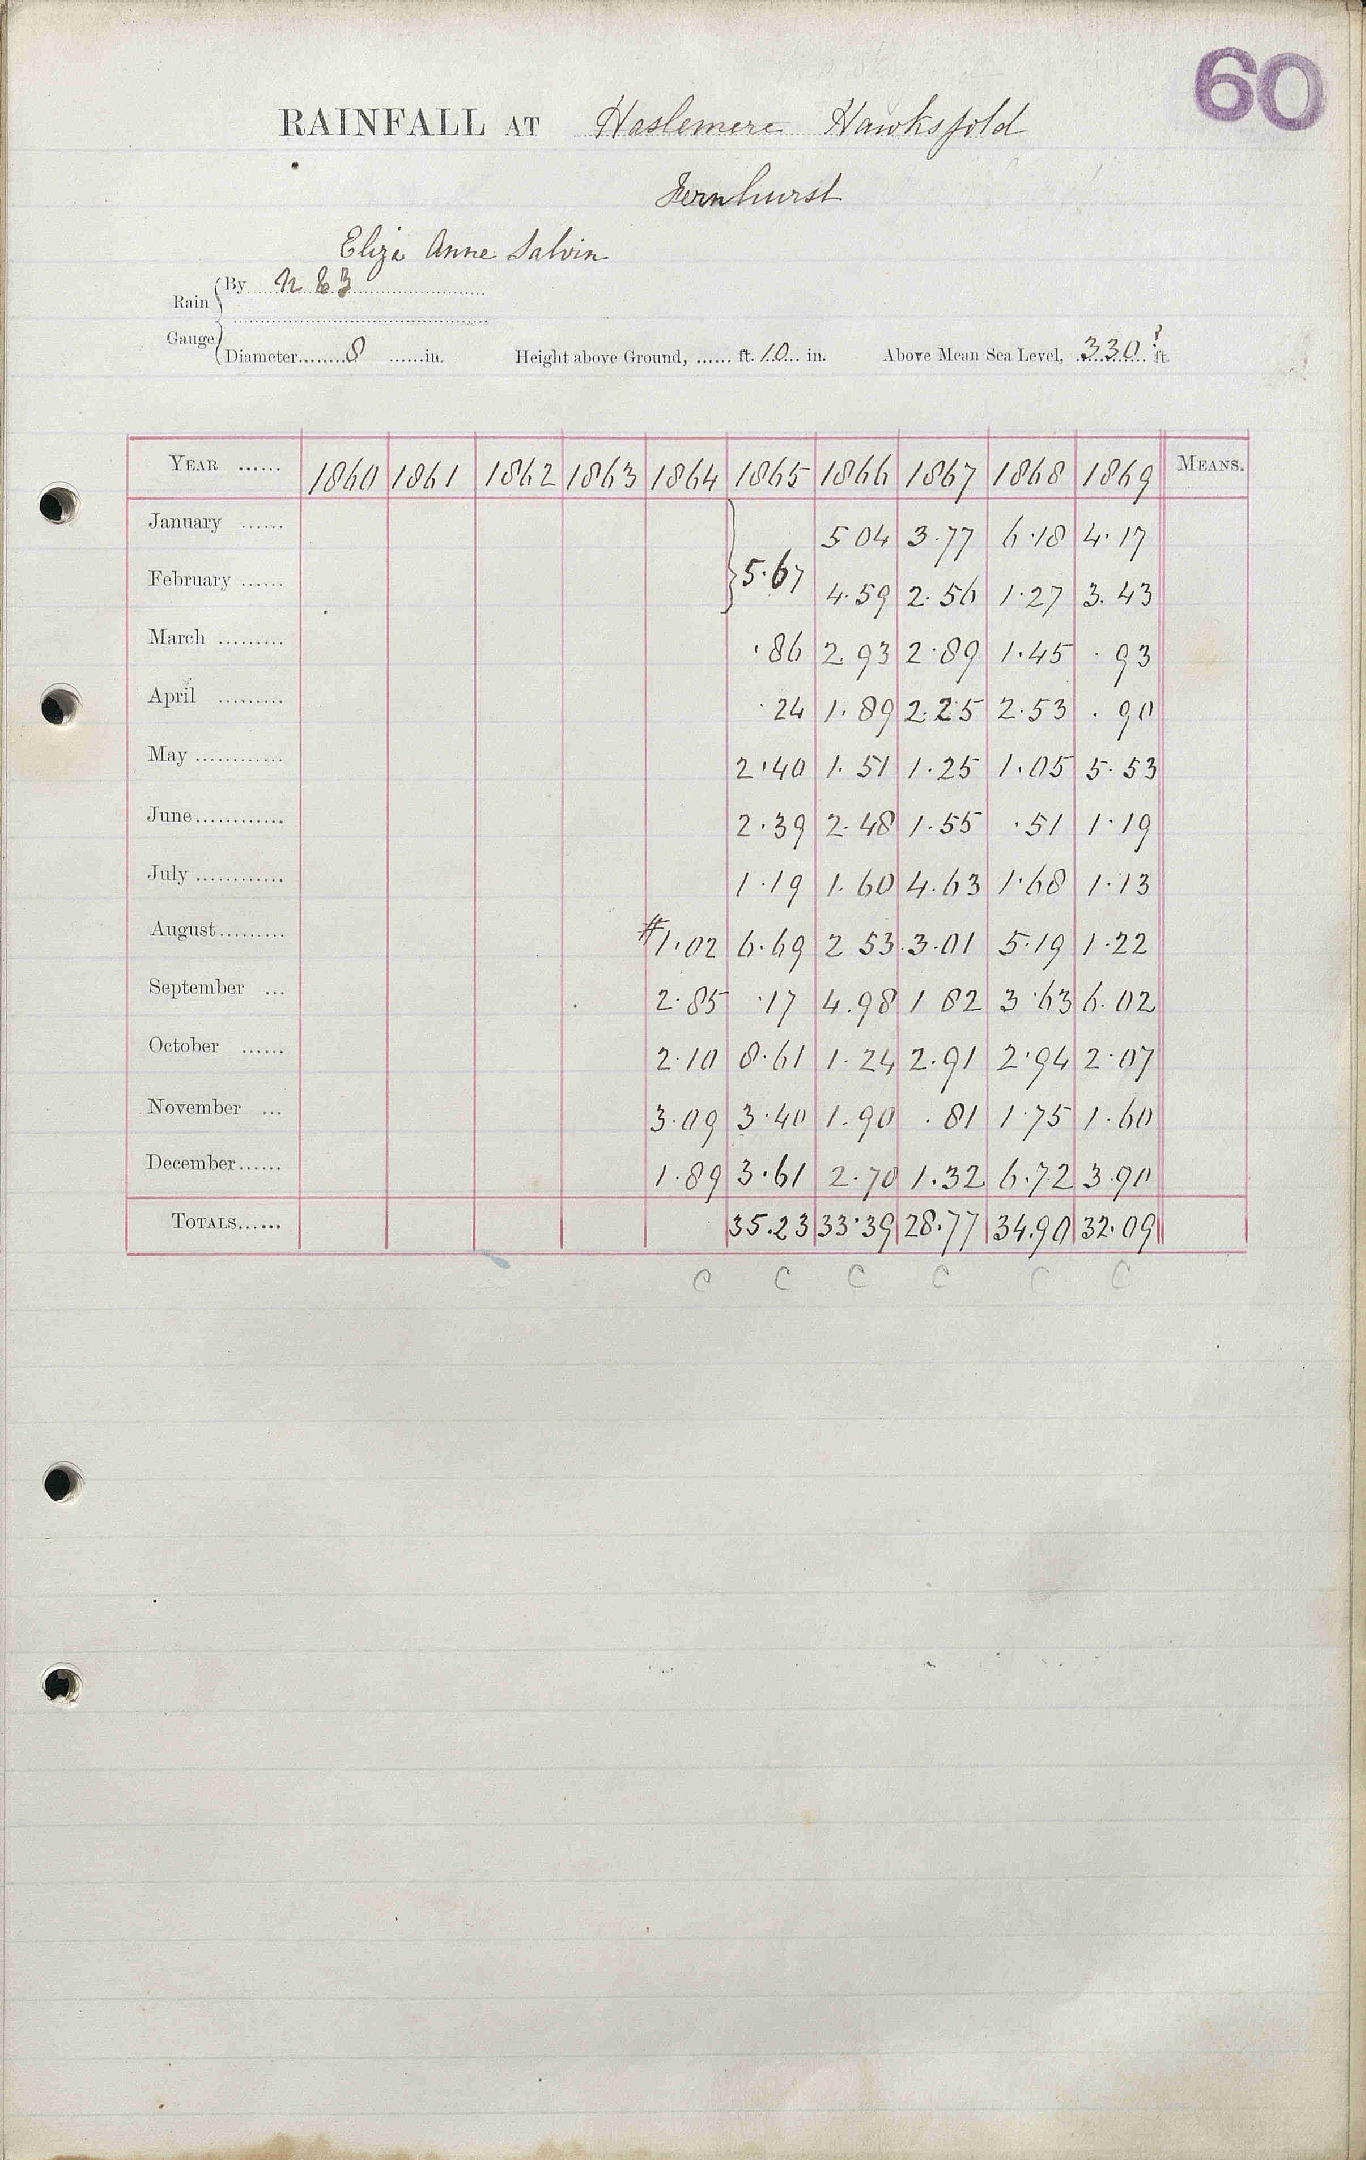 60
RAINFALL AT Haslemere Hawksfold
Fernhurst
Eliza Anne Salvin
Rain Gauge { By N E Z
Diameter........8......in. Height above Ground, ...... ft. 10... in. Above Mean Sea Level, 330 ? ft.
YEAR ...... 1860 1861 1862 1863 1864 1865 1866 1867 1868 1869 MEANS.
January ...... 5 04 3.77 6.18 4.17
February ...... } 5.67 4.59 2.56 1.27 3.43
March ......... .86 2.93 2.89 1.45 .93
April ......... .24 1.89 2.25 2.53 .90
May ............ 2.40 1.51 1.25 1.05 5.53
June............ 2.39 2.48 1.55 .51 1.19
July ............ 1.19 1.60 4.63 1.68 1.13
August......... #1.02 6.69 2 53 3.01 5.19 1.22
September ... 2.85 .17 4.98 1 82 3.63 6.02
October ...... 2.10 8.61 1.24 2.91 2.94 2.07
November ... 3.09 3.40 1.90 .81 1.75 1.60
December...... 1.89 3.61 2.70 1.32 6.72 3.90
TOTALS...... 35.23 33.39 28.77 34.90 32.09
C C C C C C